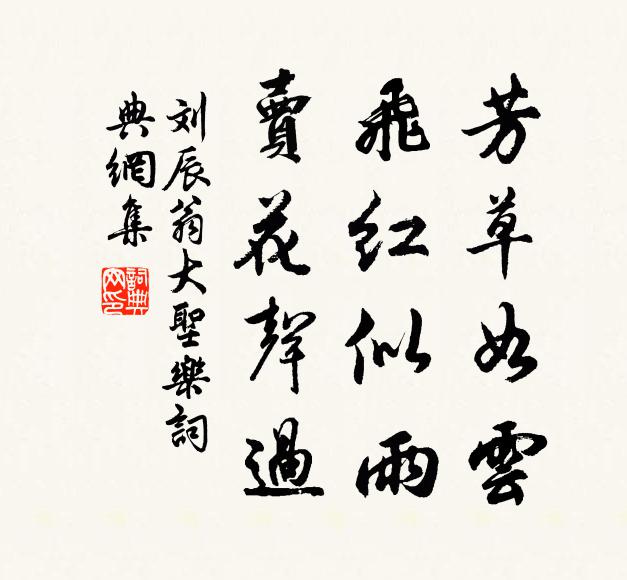 芳草如雲
飛紅似雨
賣花聲過
刘辰翁大聖樂詞
典網集
詞典網印